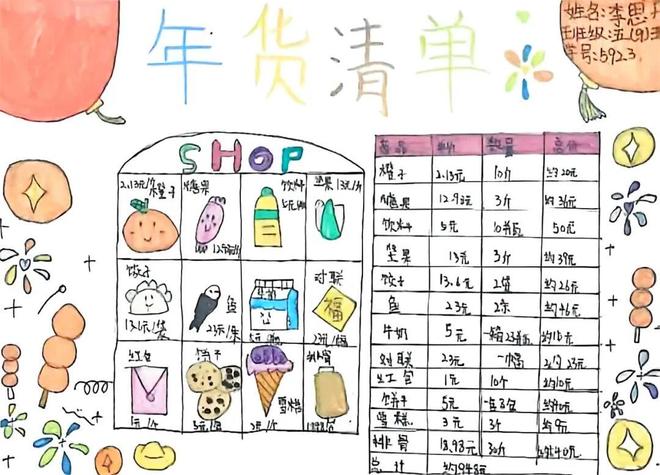 年货清单
姓名:李思
班级:五(9)班
学号:5923
SHOP
2.13元/斤 橙子
腰果
12.93元/斤
饮料
5元/瓶
坚果 13元/斤
饺子
13.6元/袋
鱼
23元/条
牛奶
对联
福
23元/幅
红包
1元/个
饼干
5元/包
雪糕
3元/个
排骨
商品 单价 数量 总价
橙子 2.13元 10斤 约20元
腰果 12.93元 3斤 约36元
饮料 5元 10瓶 50元
坚果 13元 3斤 约39元
饺子 13.6元 2袋 约26元
鱼 23元 2条 约46元
牛奶 5元 一箱 约110元
对联 23元 一幅 23元
红包 1元 10个 约10元
饼干 5元 约40元
雪糕 3元 3个 约9元
排骨 18.98元 30斤 约540元
总计 约948元